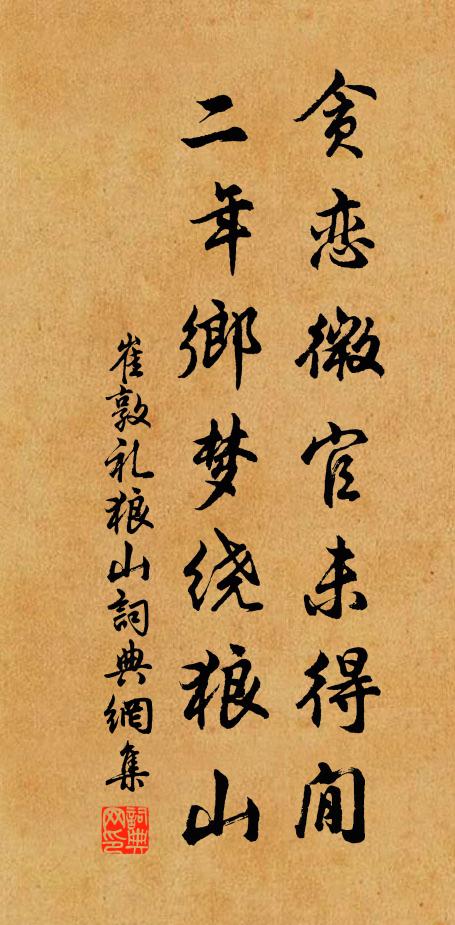 贪恋微官未得闲
二年鄉梦绕狼山
崔敦礼狼山詞典網集
詞典网印